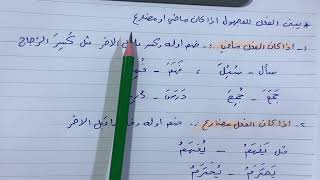 * يبنى الفعل للمجهول اذا كان ماضي او مضارع
١- اذا كان الفعل ماضي :. ضم اوله وكسر ما قبل الاخر مثل كُسِرَ الزجاج
سأل - سُئِلَ ، فَهَمَ -
جَمَعَ - جُمِعَ دَرَسَ - دُرِسَ
٢. اذا كان الفعل مضارع :. ضم اوله ماقبل الاخر
مثل يَفهَمُ - يُفهَمُ
يَحترمُ - يُحترَمُ